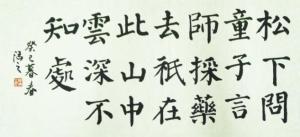 松下問
童子言
師採藥
去祇在
此山中
雲深不
知處
癸巳暮春